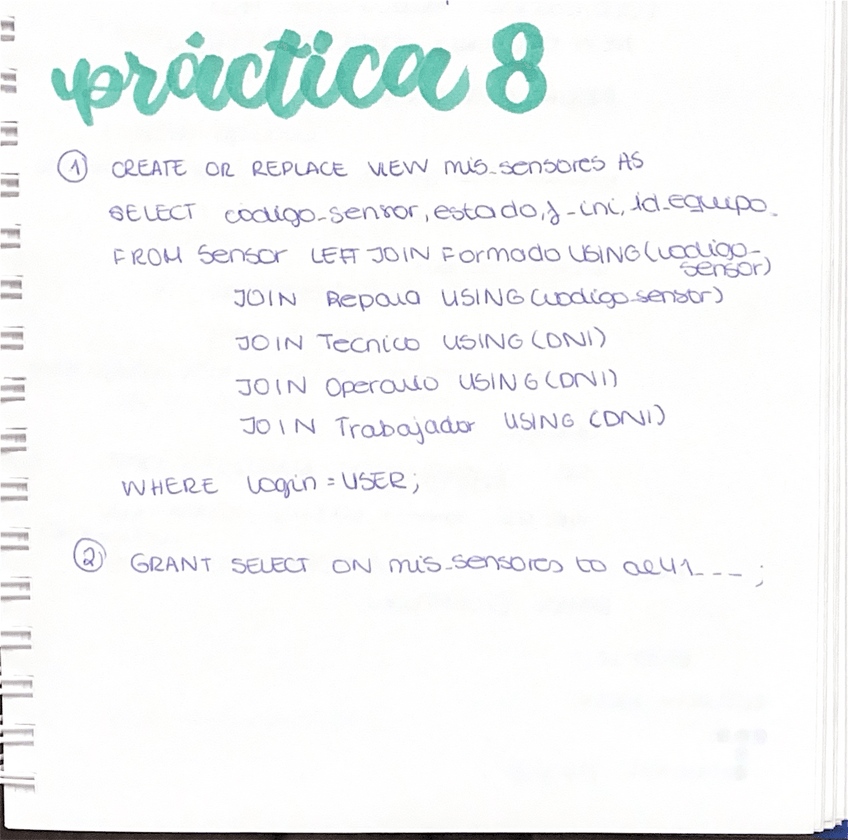 práctica 8
① CREATE OR REPLACE VIEW mis_sensores AS
SELECT codigo_sensor, estado, f_ini, id_equipo
FROM Sensor LEFT JOIN Formado USING (codigo_
sensor)
JOIN Repara USING (codigo_sensor)
JOIN Tecnico USING (DNI)
JOIN Operario USING (DNI)
JOIN Trabajador USING (DNI)
WHERE login = USER;
② GRANT SELECT ON mis_sensores to ae41___;